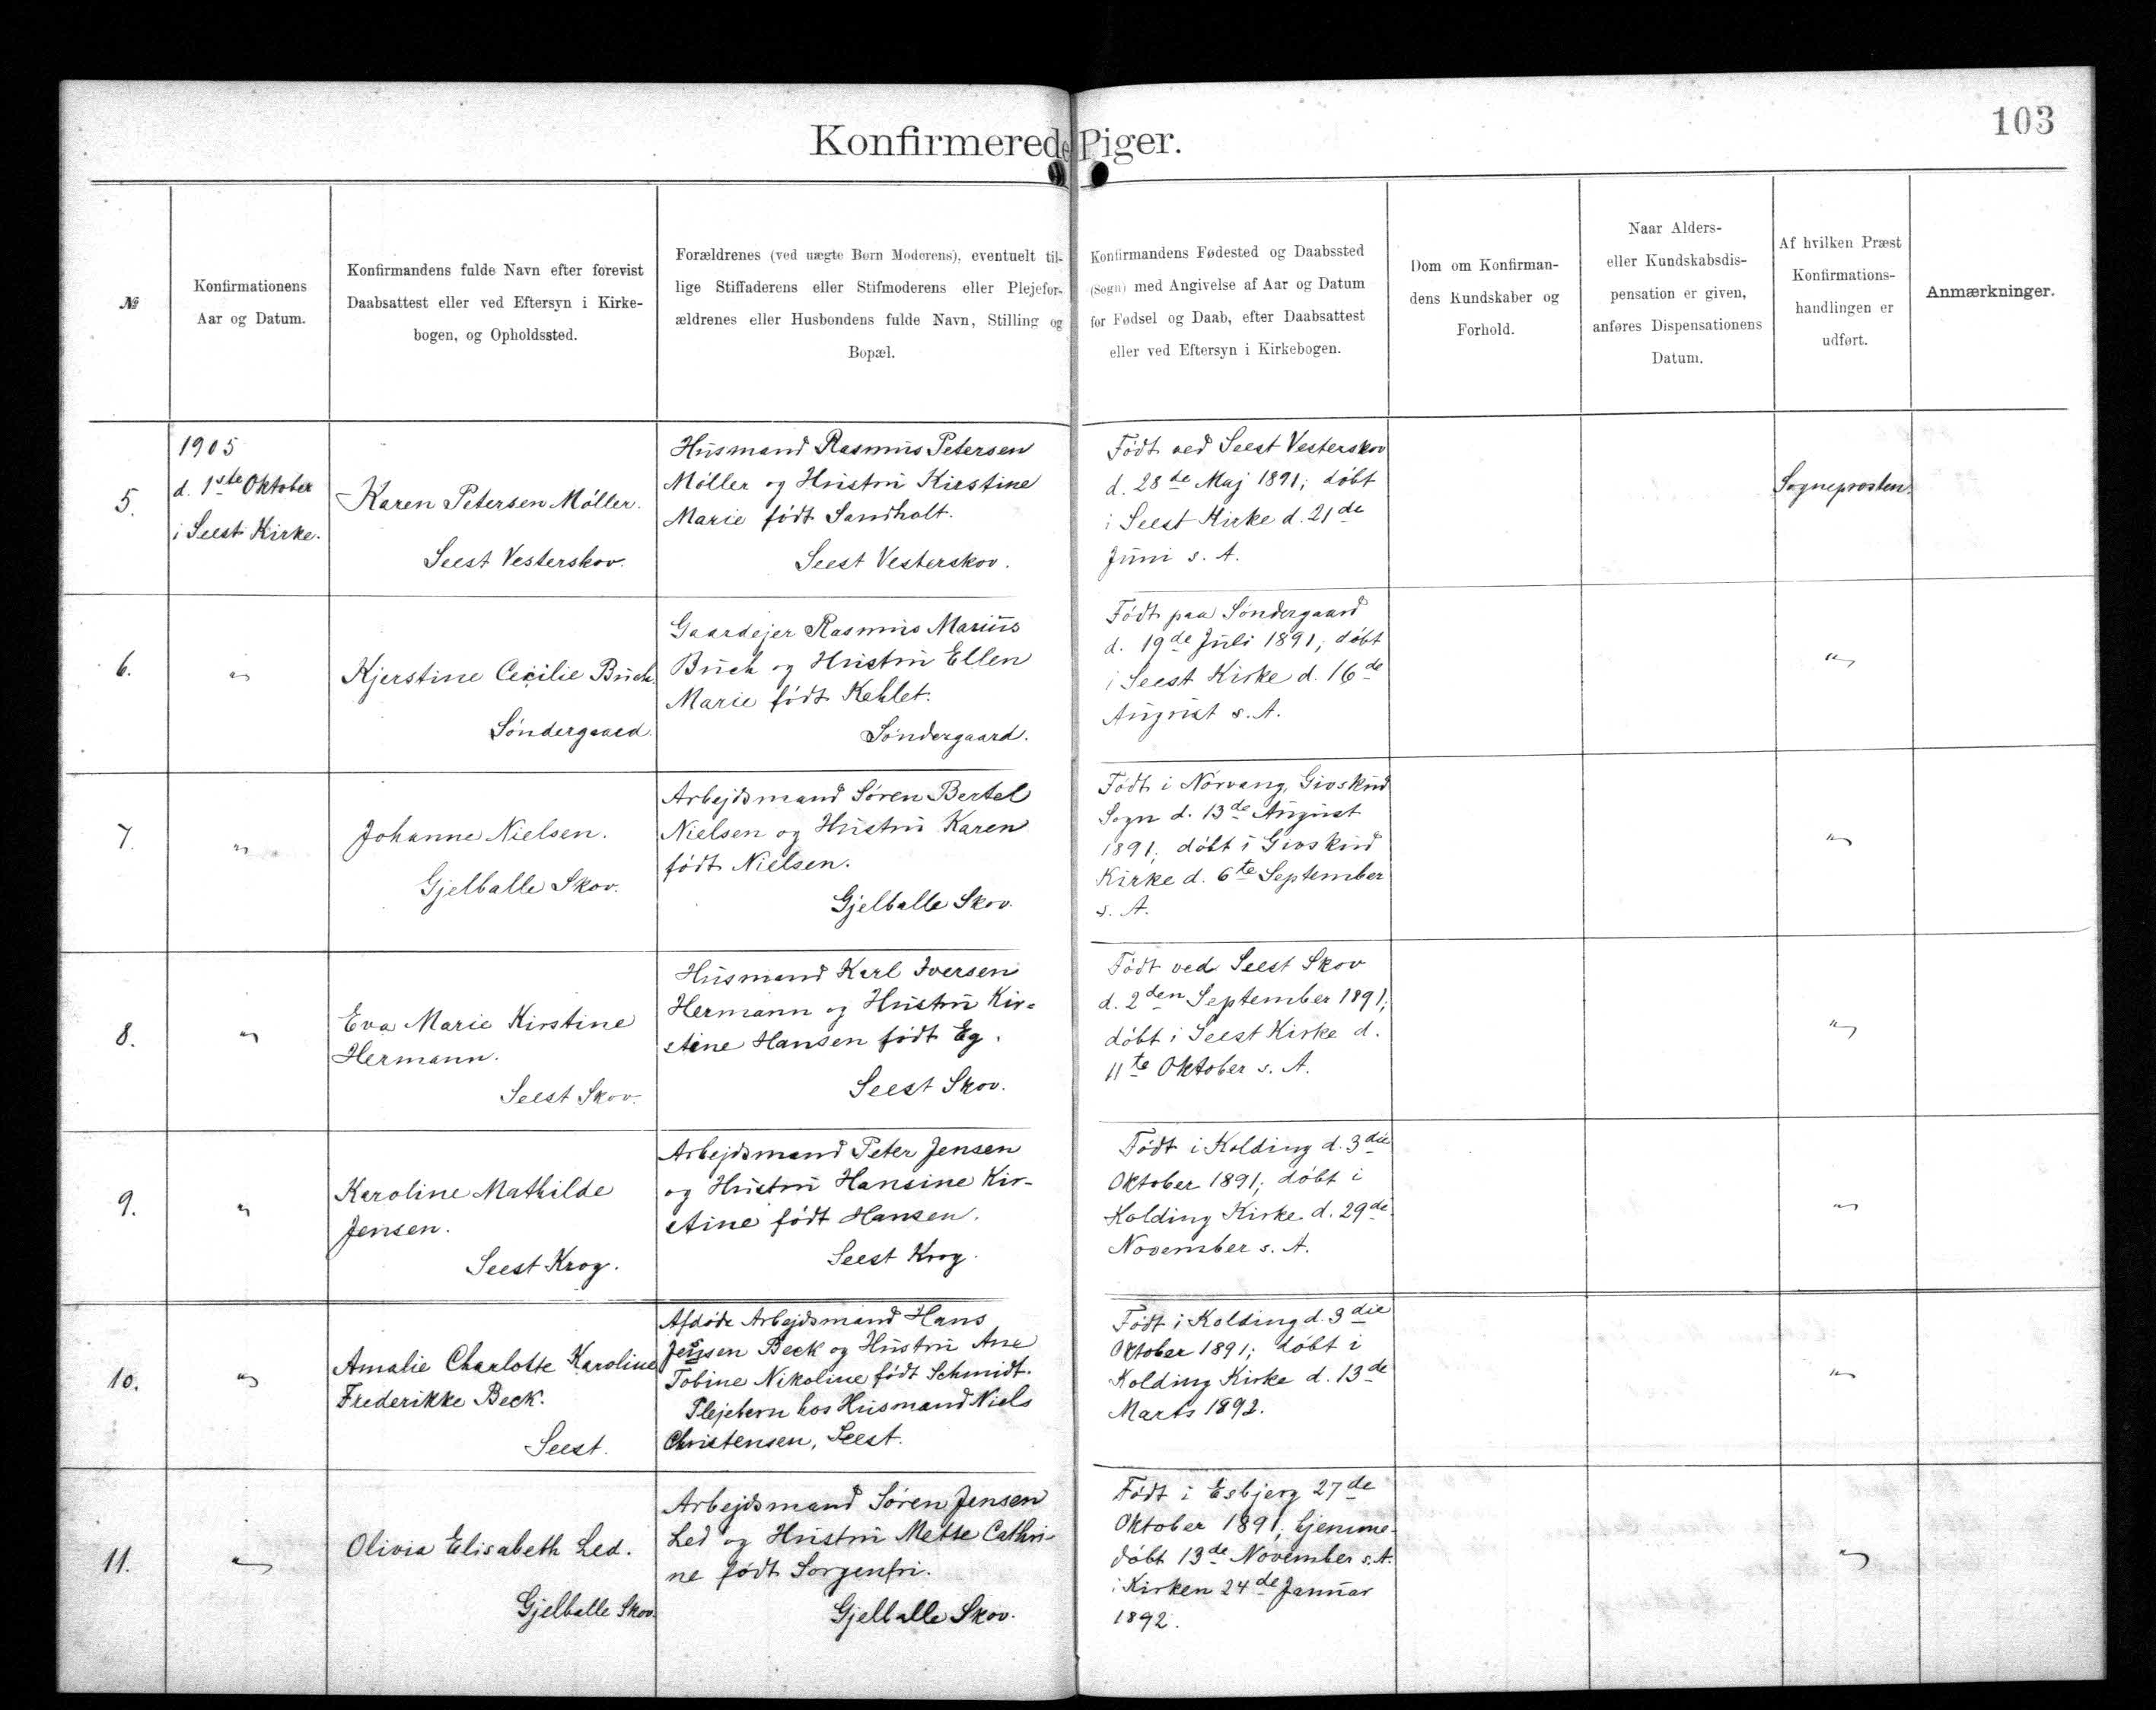 103
Konfirmerede Piger.
№
Konfirmationens
Aar og Datum.
Konfirmandens fulde Navn efter forevist
Daabsattest eller ved Eftersyn i Kirke-
bogen, og Opholdssted.
Forældrenes (ved uægte Børn Moderens), eventuelt til-
lige Stiffaderens eller Stifmoderens eller Plejefor-
ældrenes eller Husbondens fulde Navn, Stilling og
Bopæl.
Konfirmandens Fødested og Daabssted
(Sogn) med Angivelse af Aar og Datum
for Fødsel og Daab, efter Daabsattest
eller ved Eftersyn i Kirkebogen.
Dom om Konfirman-
dens Kundskaber og
Forhold.
Naar Alders-
eller Kundskabsdis-
pensation er given,
anføres Dispensationens
Datum.
Af hvilken Præst
Konfirmations-
handlingen er
udført.
Anmærkninger.
5.
1905
d. 1ste Oktober
i Seest Kirke.
Karen Petersen Møller.
Seest Vesterskov.
Husmand Rasmus Petersen
Møller og Hustru Kirstine
Marie født Sandholt.
Seest Vesterskov.
Født ved Seest Vesterskov
d. 28de Maj 1891; døbt
i Seest Kirke d. 21de
Juni s. A.
Sognepræsten.
6.
"
Kjerstine Cecilie Buch.
Søndergaard.
Gaardejer Rasmus Marius
Buch og Hustru Ellen
Marie født Kehlet.
Søndergaard.
Født paa Søndergaard
d. 19de Juli 1891; døbt
i Seest Kirke d. 16de
August s. A.
"
7.
"
Johanne Nielsen.
Gjelballe Skov.
Arbejdsmand Søren Bertel
Nielsen og Hustru Karen
født Nielsen.
Gjelballe Skov.
Født i Nørvang, Givskud
Sogn d. 13de August
1891; døbt i Givskud
Kirke d. 6te September
s. A.
"
8.
"
Eva Marie Kirstine
Hermann.
Seest Skov.
Husmand Karl Iversen
Hermann og Hustru Kir-
stine Hansen født Eg.
Seest Skov.
Født ved Seest Skov
d. 2den September 1891;
døbt i Seest Kirke d.
11te Oktober s. A.
"
9.
"
Karoline Mathilde
Jensen.
Seest Krog.
Arbejdsmand Peter Jensen
og Hustru Hansine Kir-
stine født Hansen.
Seest Krog.
Født i Kolding d. 3die
Oktober 1891; døbt i
Kolding Kirke d. 29de
November s. A.
"
10.
"
Amalie Charlotte Karoline
Frederikke Beck.
Seest.
Afdøde Arbejdsmand Hans
Jessen Beck og Hustru Ane
Tobine Nikoline født Schmidt.
Plejebern hos Husmand Niels
Christensen, Seest.
Født i Kolding d. 3die
Oktober 1891; døbt i
Kolding Kirke d. 13de
Marts 1892.
"
11.
"
Olivia Elisabeth Led.
Gjelballe Skov.
Arbejdsmand Søren Jensen
Led og Hustru Mette Cathri-
ne født Sorgenfri.
Gjelballe Skov.
Født i Esbjerg 27de
Oktober 1891; hjemme-
døbt 13de November s. A.
i Kirken 24de Januar
1892.
"